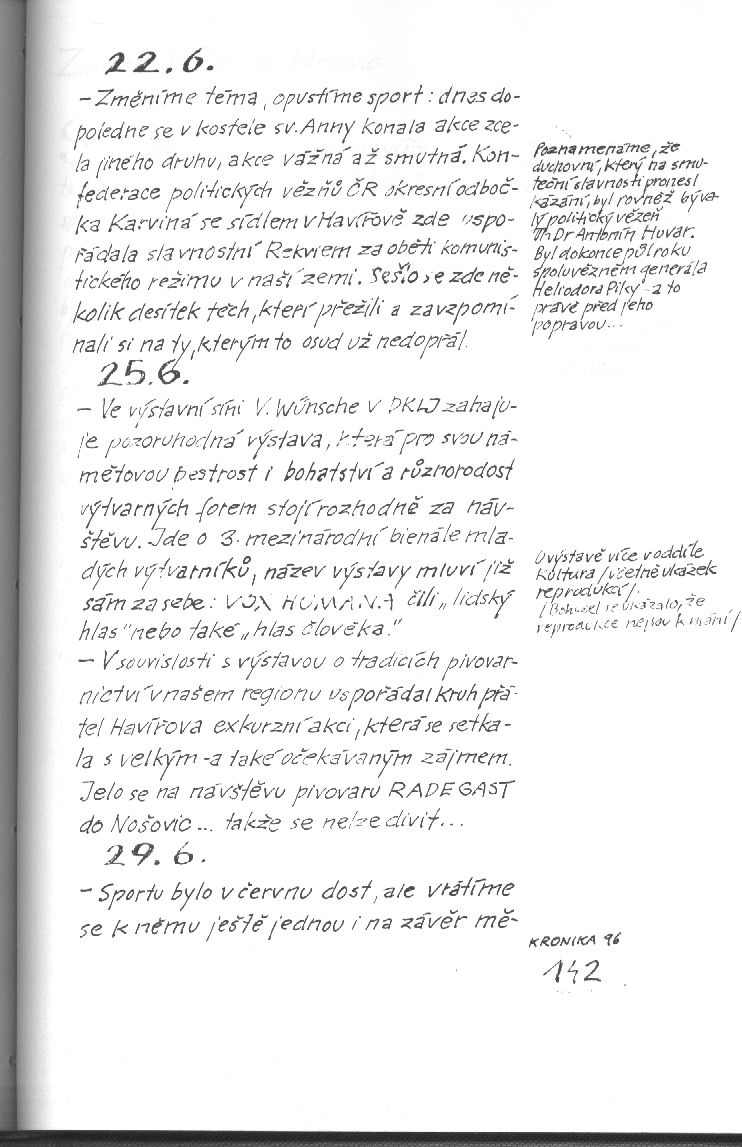 22.6.
– Změníme téma, opustíme sport: dnes do-
poledne se v kostele sv. Anny konala akce zce-
la jiného druhu, akce vážná až smutná. Kon-
federace politických vězňů ČR okresní odboč-
ka Karviná se sídlem v Havířově zde uspo-
řádala slavnostní Rekviem za oběti komunis-
tického režimu v naší zemi. Sešlo se zde ně-
kolik desítek těch, kteří přežili a zavzpomí-
nali si na ty, kterým to osud už nedopřál.
25.6.
– Ve výstavní síni V. Wünsche v DKLJ zahaju-
je pozoruhodná výstava, která pro svou ná-
mětovou pestrost i bohatství a různorodost
výtvarných forem stojí rozhodně za náv-
štěvu. Jde o 3. mezinárodní bienále mla-
dých výtvarníků, název výstavy mluví již
sám za sebe: VOX HUMANA čili „lidský
hlas" nebo také „hlas člověka."
– V souvislosti s výstavou o tradicích pivovar-
nictví v našem regionu uspořádal Kruh přá-
tel Havířova exkurzní akci, která se setka-
la s velkým - a také očekávaným zájmem.
Jelo se na návštěvu pivovaru RADEGAST
do Nošovic... takže se nelze divit...
29.6.
– Sportu bylo v červnu dost, ale vrátíme
se k němu ještě jednou i na závěr mě-
Poznamenáme, že
duchovní, který na smu-
teční slavnosti pronesl
kázání, byl rovněž býva-
lý politický vězeň
ThDr Antonín Huvar.
Byl dokonce půl roku
spoluvězněm generála
Heliodora Píky - a to
právě před jeho
popravou...
O výstavě více v oddíle
Kultura /včetně ukázek
reprodukcí/.
/Bohužel se ukázalo, že
reprodukce nejsou k mání/
KRONIKA 96
142